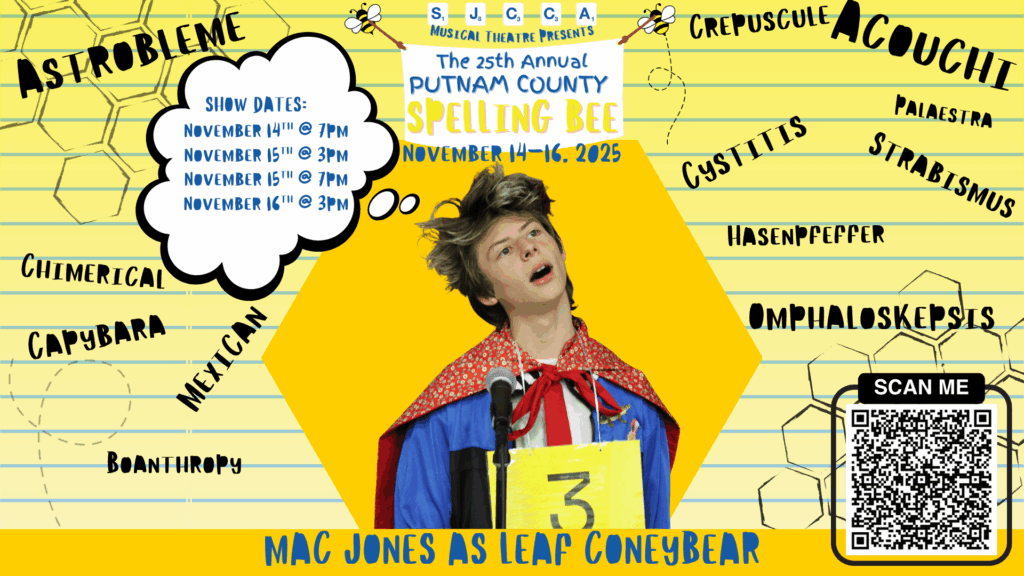 S₁ J₈ C₃ C₃ A₁
Musical Theatre Presents
The 25th Annual
PUTNAM COUNTY
SPELLING BEE
November 14-16, 2025
Show Dates:
November 14th @ 7pm
November 15th @ 3pm
November 15th @ 7pm
November 16th @ 3pm
Astrobleme
Crepuscule
Acouchi
Palaestra
Cystitis
Strabismus
Hasenpfeffer
Chimerical
Capybara
Mexican
Omphaloskepsis
Boanthropy
SCAN ME
3
Mac Jones as Leaf Coneybear